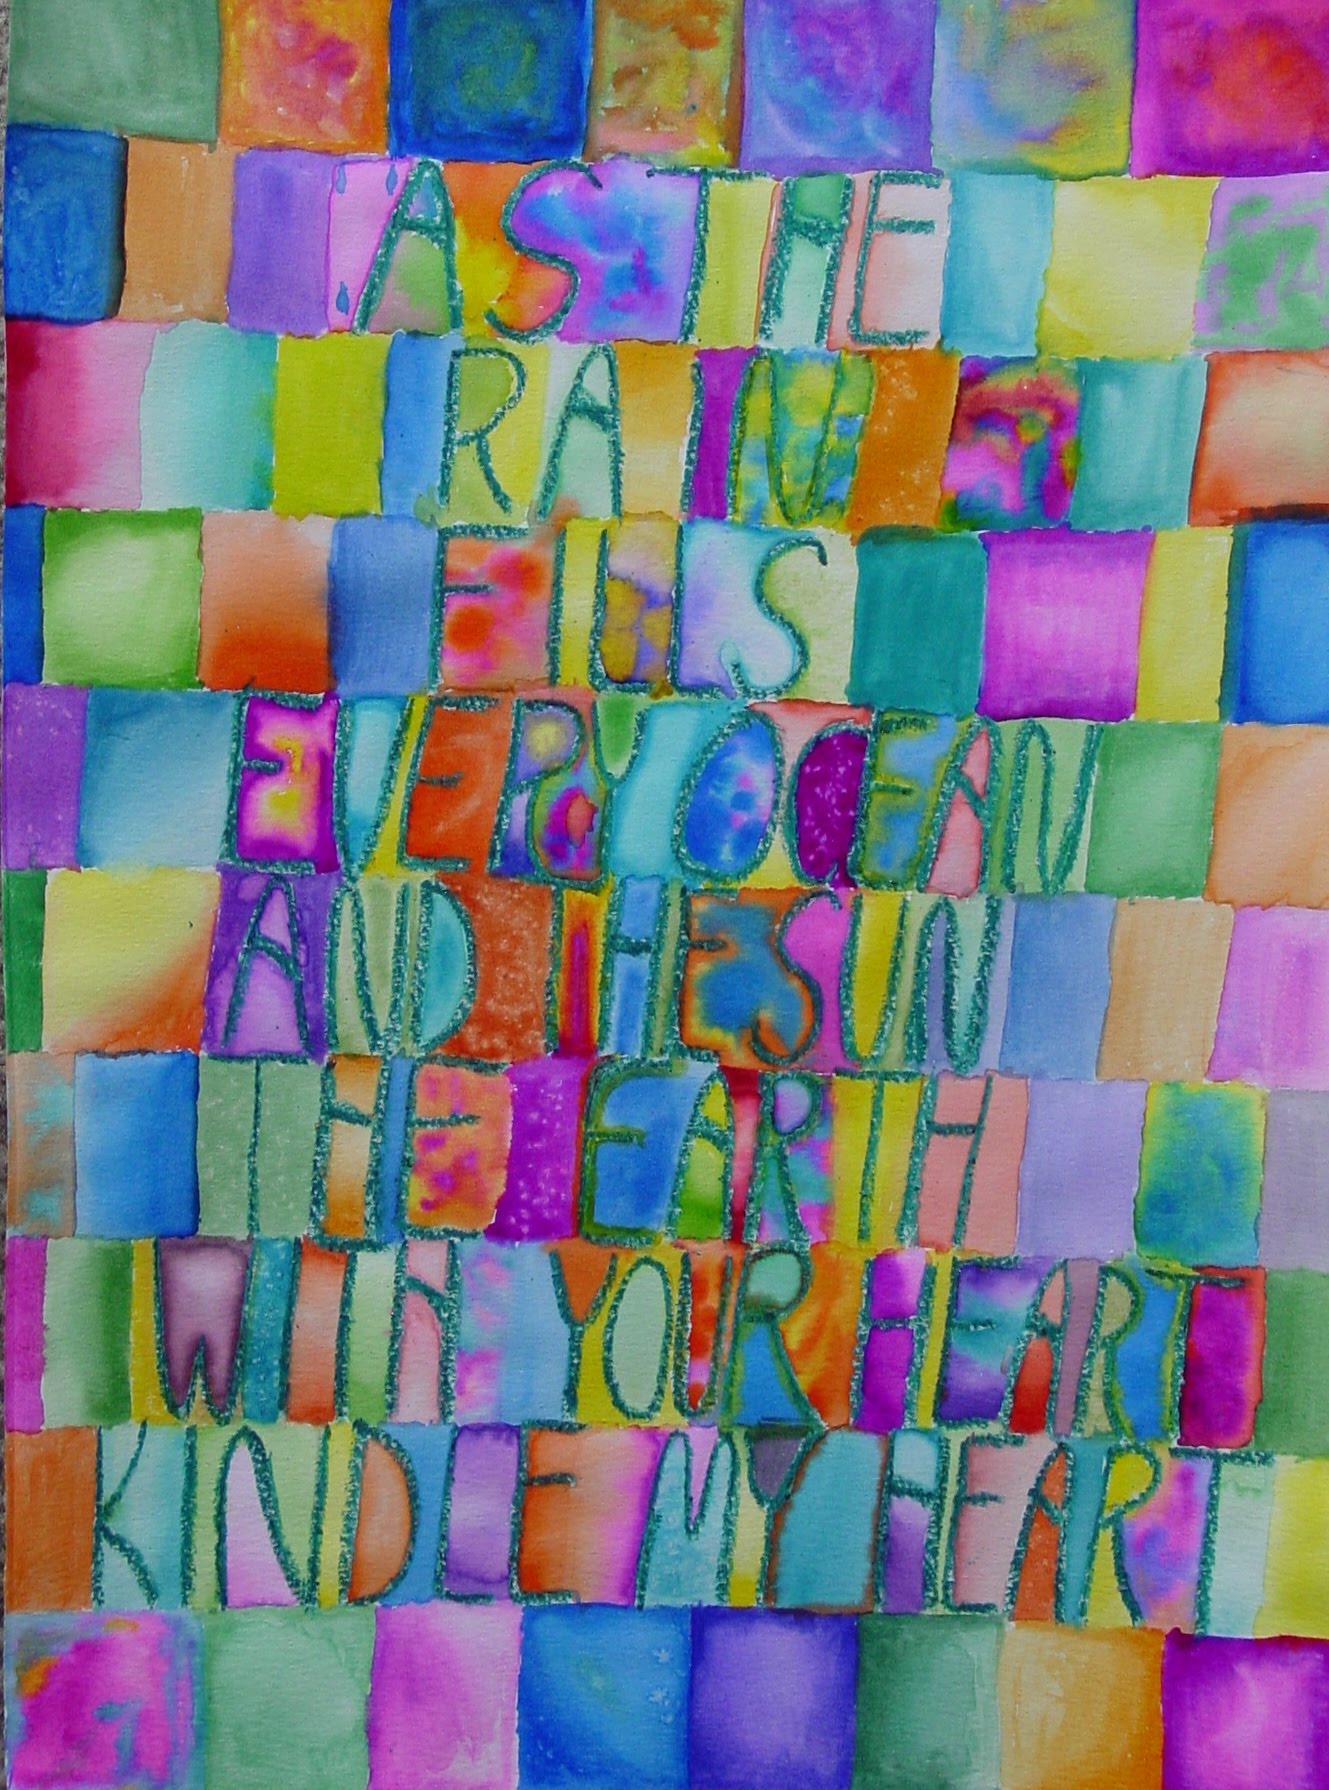 AS THE
RAIN
FILLS
EVERY OCEAN
AND THE SUN
THE EARTH
WITH YOUR HEART
KINDLE MY HEART